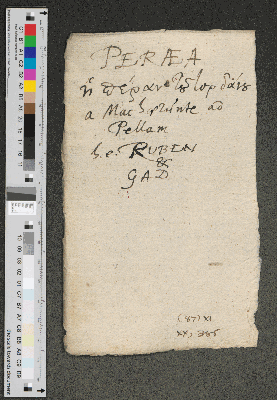 PERÆA
ἡ πέραν τοῦ Ἰορδάνε
a Machærunte ad
Pellam
h.e. RUBEN
&
GAD
(87) XI
XX, 385